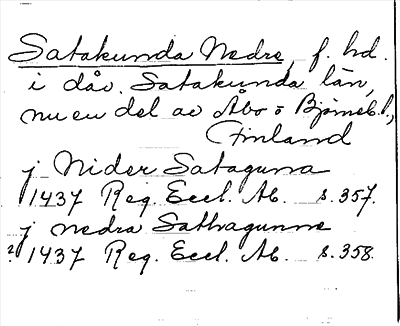 Satakunda Nedre, f. hd.
i dåv. Satakunda län,
nu en del av Åbo o Björneb. l.,
Finland
j Nider Sataguna
1437 Reg. Eccl. Ab. s. 357.
j nedra Sathagunne
? 1437 Reg. Eccl. Ab. s. 358.